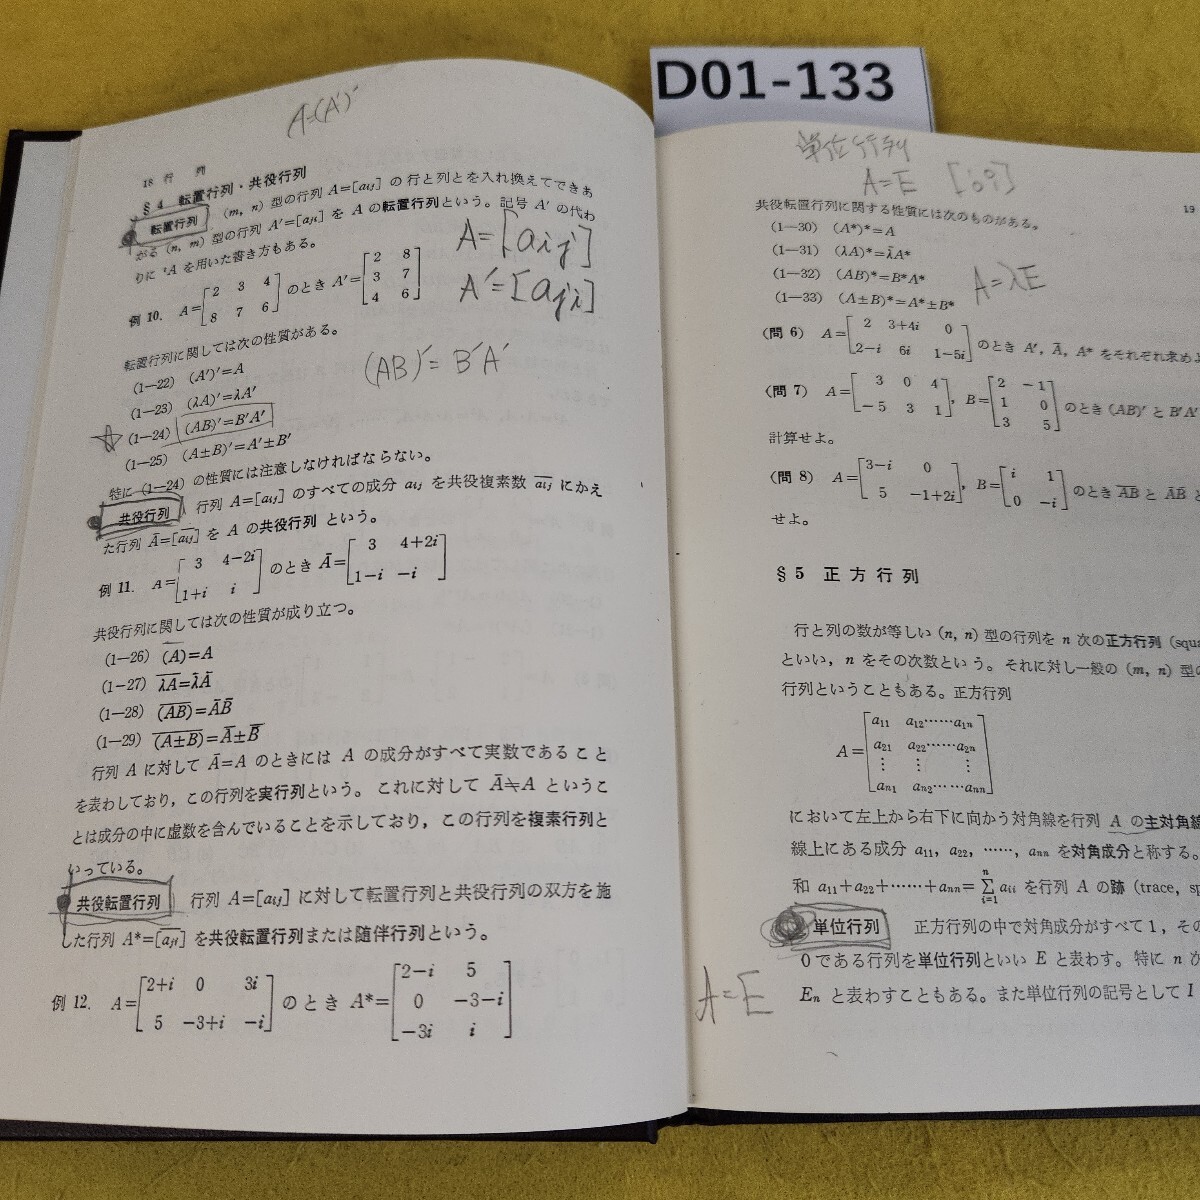 D01-133
A=(A')'
18 行 列
§4 転置行列・共役行列
転置行列 (m, n) 型の行列 A=[aij] の行と列とを入れ換えてできあ
がる (n, m) 型の行列 A'=[aji] を A の転置行列という。記号 A' の代わ
りに ᵗA を用いた書き方もある。
A=[aij]
A'=[aji]
例 10. A=[2 3 4
8 7 6] のとき A'=[2 8
3 7
4 6]
転置行列に関しては次の性質がある。
(1—22) (A')'=A
(1—23) (λA)'=λA'
(1—24) (AB)'=B'A'
(1—25) (A±B)'=A'±B'
(AB)'=B'A'
特に (1—24) の性質には注意しなければならない。
共役行列 行列 A=[aij] のすべての成分 aij を共役複素数 a̅i̅j̅ にかえ
た行列 A̅=[a̅i̅j̅] を A の共役行列 という。
例 11. A=[3 4−2i
1+i i] のとき A̅=[3 4+2i
1−i −i]
共役行列に関しては次の性質が成り立つ。
(1—26) (A̅)=A
(1—27) λ̅A̅=λ̅A̅
(1—28) (A̅B̅)=A̅B̅
(1—29) (A̅±B̅)=A̅±B̅
行列 A に対して A̅=A のときには A の成分がすべて実数であること
を表わしており，この行列を実行列という。これに対して A̅≠A というこ
とは成分の中に虚数を含んでいることを示しており，この行列を複素行列と
いっている。
共役転置行列 行列 A=[aij] に対して転置行列と共役行列の双方を施
した行列 A*=[a̅j̅i̅] を共役転置行列または随伴行列という。
例 12. A=[2+i 0 3i
5 −3+i −i] のとき A*=[2−i 5
0 −3−i
−3i i]
単位行列
A=E
19
共役転置行列に関する性質には次のものがある。
(1—30) (A*)*=A
(1—31) (λA)*=λ̅A*
(1—32) (AB)*=B*A*
(1—33) (A±B)*=A*±B*
A=λE
(問 6) A=[2 3+4i 0
2−i 6i 1−5i] のとき A', A̅, A* をそれぞれ求めよ
(問 7) A=[3 0 4
−5 3 1], B=[2 −1
1 0
3 5] のとき (AB)' と B'A'
計算せよ。
(問 8) A=[3−i 0
5 −1+2i], B=[i 1
0 −i] のとき A̅B̅ と A̅B̅ と
せよ。
§5 正方行列
行と列の数が等しい (n, n) 型の行列を n 次の正方行列 (squa
といい，n をその次数という。それに対し一般の (m, n) 型の
行列ということもある。正方行列
A=[a11 a12……a1n
a21 a22……a2n
⋮ ⋮ ⋮
an1 an2……ann]
において左上から右下に向かう対角線を行列 A の主対角線
線上にある成分 a11, a22, ……, ann を対角成分と称する。
和 a11+a22+……+ann=Σ(i=1, n) aii を行列 A の跡 (trace, sp
単位行列 正方行列の中で対角成分がすべて1，その
0である行列を単位行列といい E と表わす。特に n 次
En と表わすこともある。また単位行列の記号として I
A=E